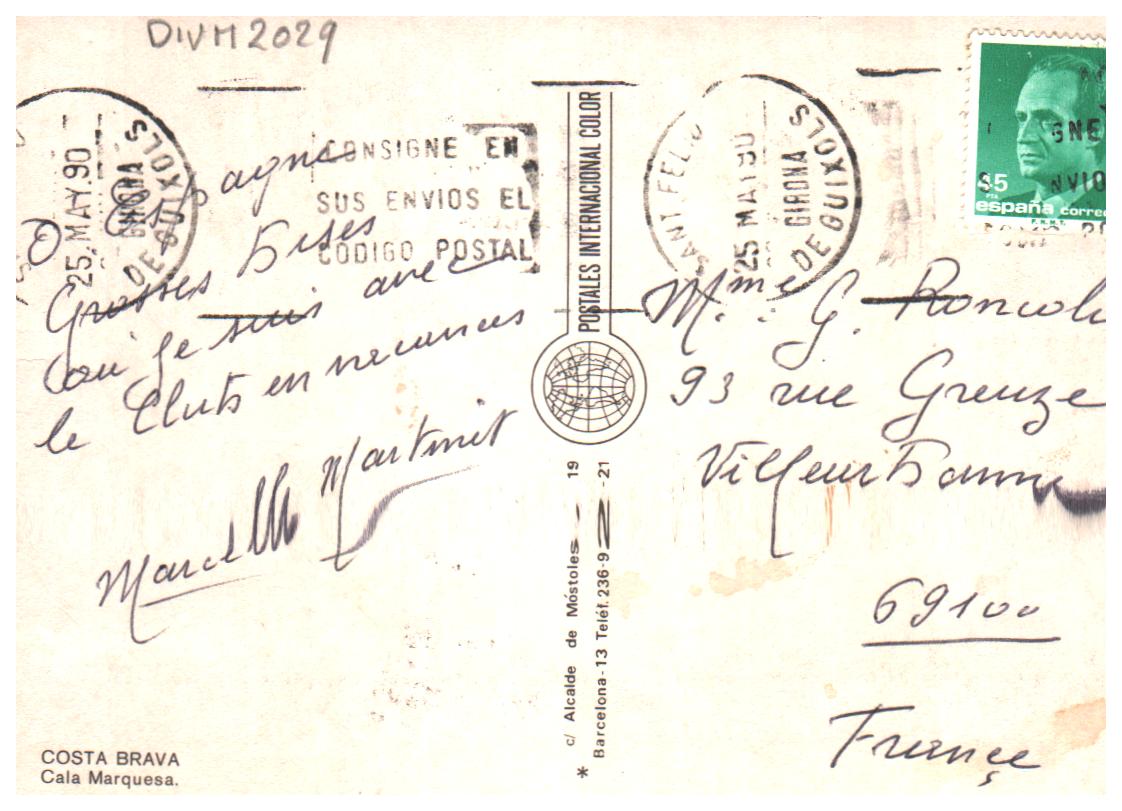 DIVM 2029
25. MAY. 90
GIRONA
DE GUIXOLS
CONSIGNE EN
SUS ENVIOS EL
CODIGO POSTAL
SANT FELIU
DE GUIXOLS
25 MAY 90
GIRONA
45
PTA
españa correo
F.N.M.T.
D'Espagne
Grosses bises
où je suis avec
le Club en vacances
Marcelle Martinet
POSTALES INTERNACIONAL COLOR
c/ Alcalde de Móstoles 19
Barcelona-13 Teléf. 236-9 21
*
Mme G. Roncol
93 rue Greuze
Villeurbanne
69100
France
COSTA BRAVA
Cala Marquesa.